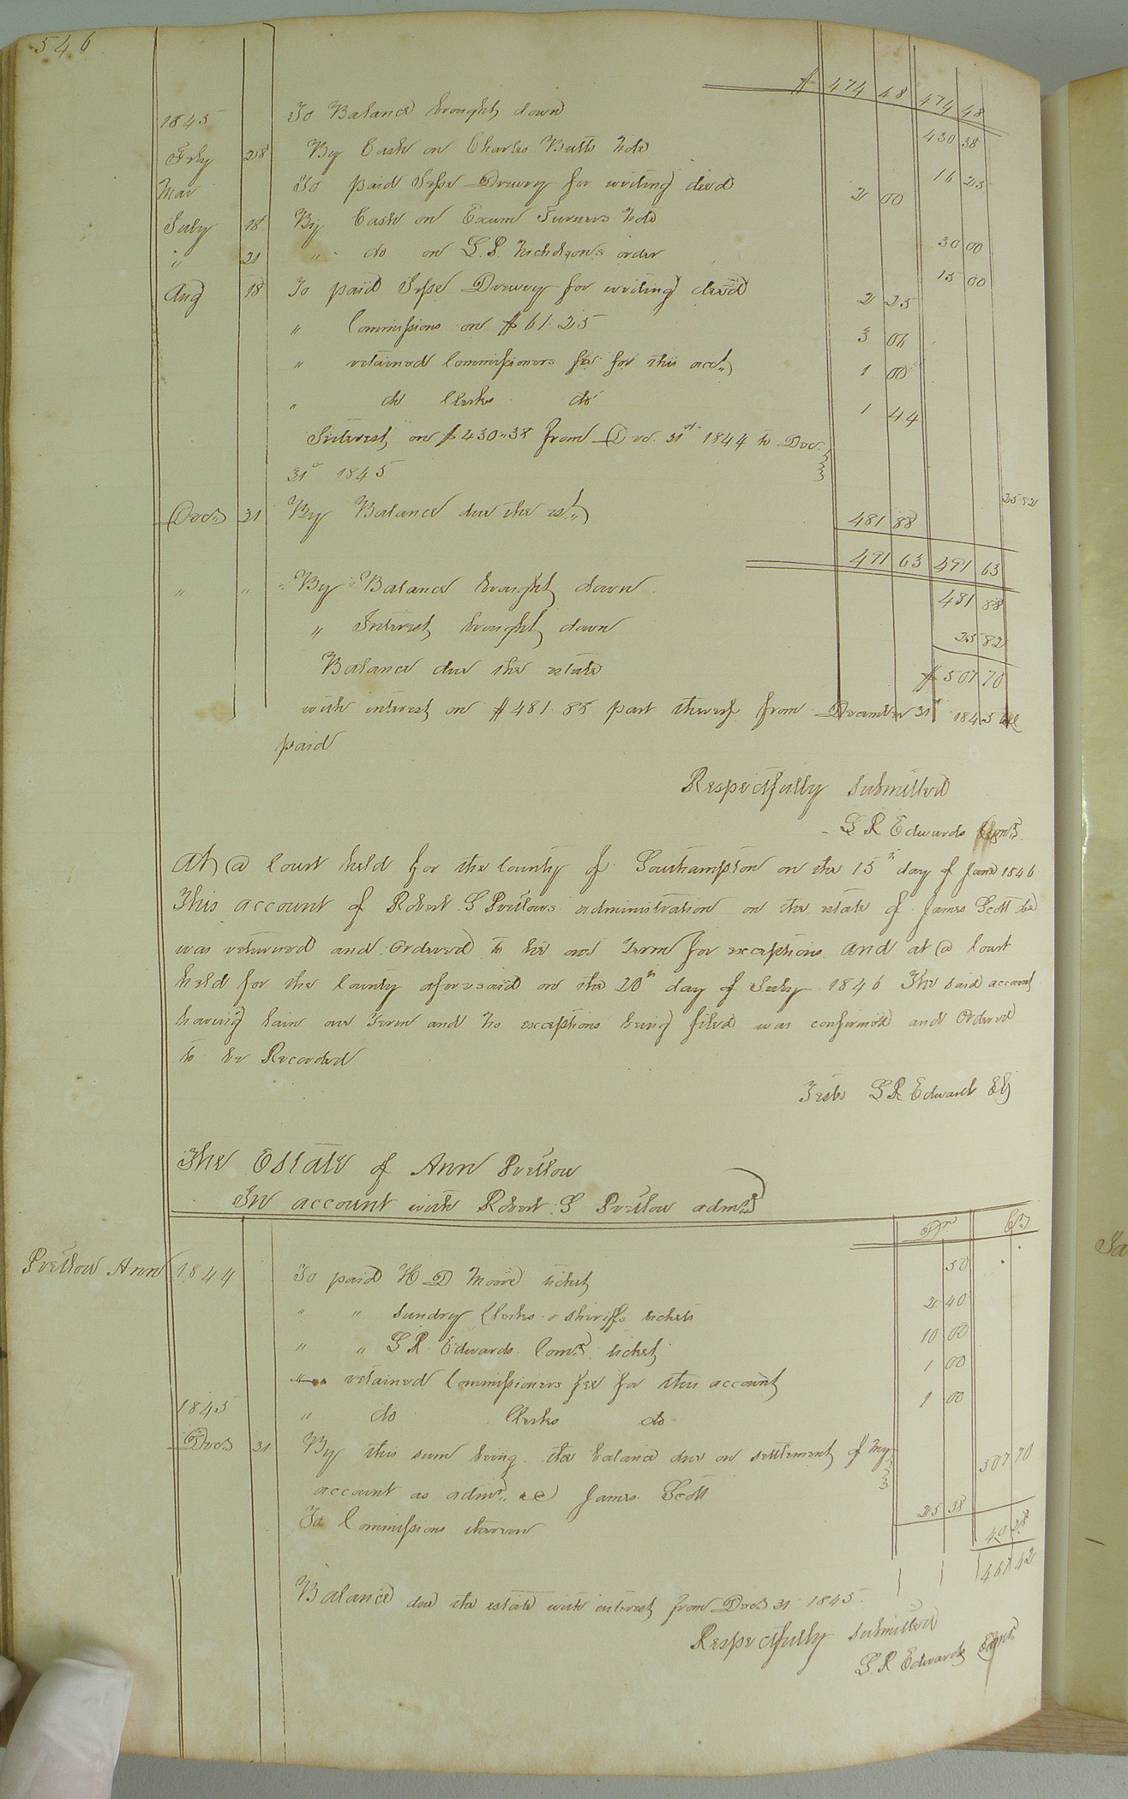 546
$ 474 48 474 48
1845 To Balance brought down 430 38
Feby 28 By Cash on Charles Butts note 16 25
Mar To paid Jesse Drewry for writing deed 2 00
July 18 By Cash on Exum Turners note 30 00
" 21 " do on L. R. Nicholson's order 15 00
Aug 18 To paid Jesse Drewry for writing deed 2 25
" Commissions on $ 61.25 3 06
" retained Commissioners fee for this acct. 1 00
" do Clerks do 1 44
Interest on $430.38 from Dec. 31st 1844 to Dec.
31st 1845 25 82
Decr 31 By Balance due the est. 481 88
491 63 491 63
" " By Balance brought down 481 88
" Interest brought down 25 82
Balance due the estate $ 507 70
with interest on $ 481.88 part thereof from December 31st 1845 till
paid
Respectfully Submitted
L R Edwards Comr.
At a Court held for the County of Southampton on the 15th day of June 1846
This account of Robert S Pretlows administration on the estate of James Scott dec
was returned and Ordered to lie one Term for exceptions and at a Court
held for the County aforesaid on the 20th day of July 1846 The said account
having lain one Term and no exceptions being filed was confirmed and Ordered
to be Recorded
Teste L R Edwards Clk
The Estate of Ann Pretlow
In account with Robert S Pretlow admr.
Dr. Cr.
Pretlow Ann 1844 To paid H D Moore ticket 50
" " Sundry Clerks & Sheriffs tickets 2 40
" " L R Edwards Comr. ticket 10 00
" retained Commissioners fee for this account 1 00
1845 " do Clerks do 1 00
Decr 31 By this sum being the balance due on settlement of my
account as admr. of James Scott 507 70
To Commissions thereon 25 38
40 28
467 42
Balance due the estate with interest from Decr 31 1845.
Respectfully Submitted
L R Edwards Comr.